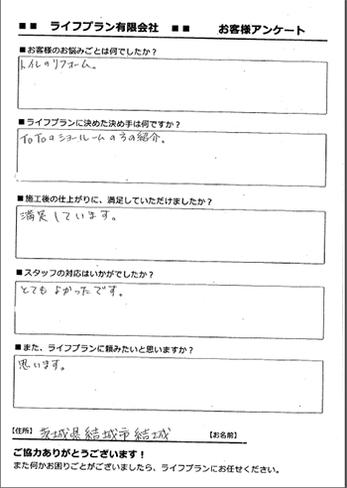 ■■ ライフプラン有限会社 ■■ お客様アンケート
■お客様のお悩みごとは何でしたか?
トイレのリフォーム。
■ライフプランに決めた決め手は何ですか?
TOTOのショールームの方の紹介。
■施工後の仕上がりに、満足していただけましたか?
満足しています。
■スタッフの対応はいかがでしたか?
とてもよかったです。
■また、ライフプランに頼みたいと思いますか?
思います。
【住所】 茨城県結城市結城 【お名前】
ご協力ありがとうございます!
また何かお困りごとがございましたら、ライフプランにお任せください。